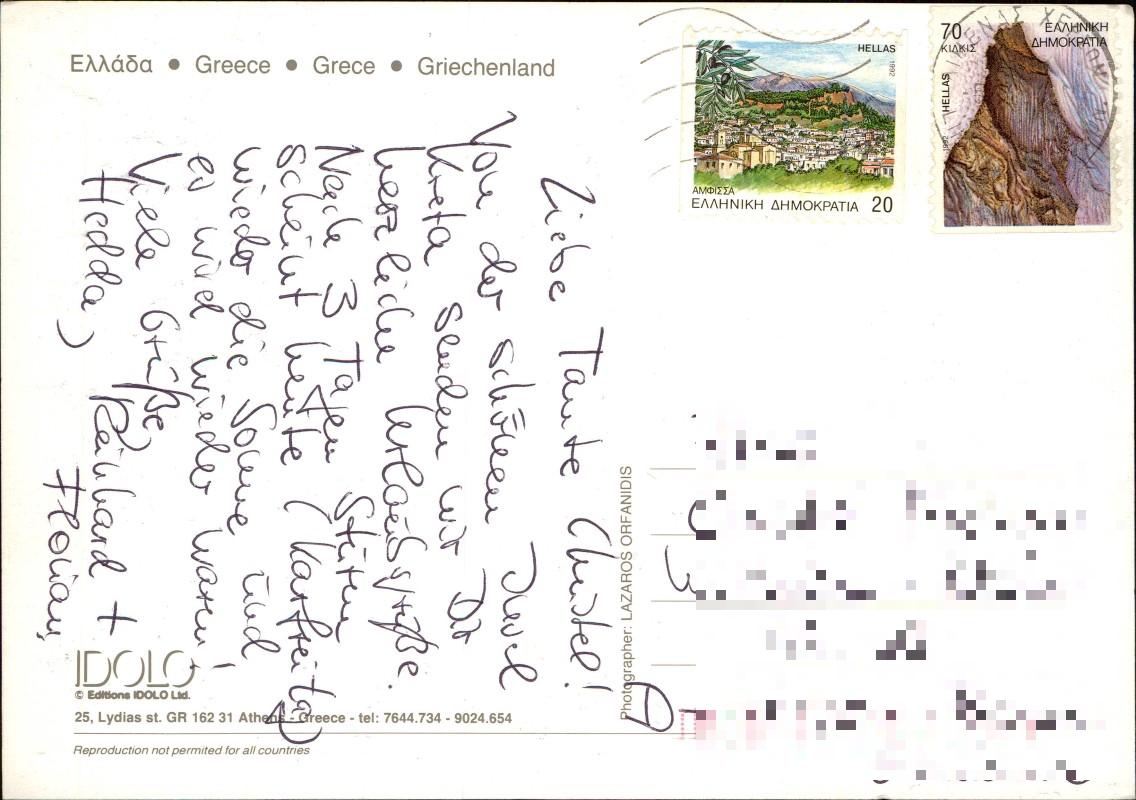 Ελλάδα • Greece • Grece • Griechenland
HELLAS
1992
ΑΜΦΙΣΣΑ
ΕΛΛΗΝΙΚΗ ΔΗΜΟΚΡΑΤΙΑ 20
70
ΚΙΛΚΙΣ
ΕΛΛΗΝΙΚΗ
ΔΗΜΟΚΡΑΤΙΑ
HELLAS
1992
Liebe Tante Christel!
Von der schönen Insel
Kreta senden wir Dir
herzliche Urlaubsgrüße.
Nach 3 Tagen Sturm
scheint heute (Karfreitag)
wieder die Sonne und
es wird wieder warm!
Viele Grüße
Hedda, Reinhard +
Florian
Photographer: LAZAROS ORFANIDIS
IDOLO
© Editions IDOLO Ltd.
25, Lydias st. GR 162 31 Athens - Greece - tel: 7644.734 - 9024.654
Reproduction not permitted for all countries